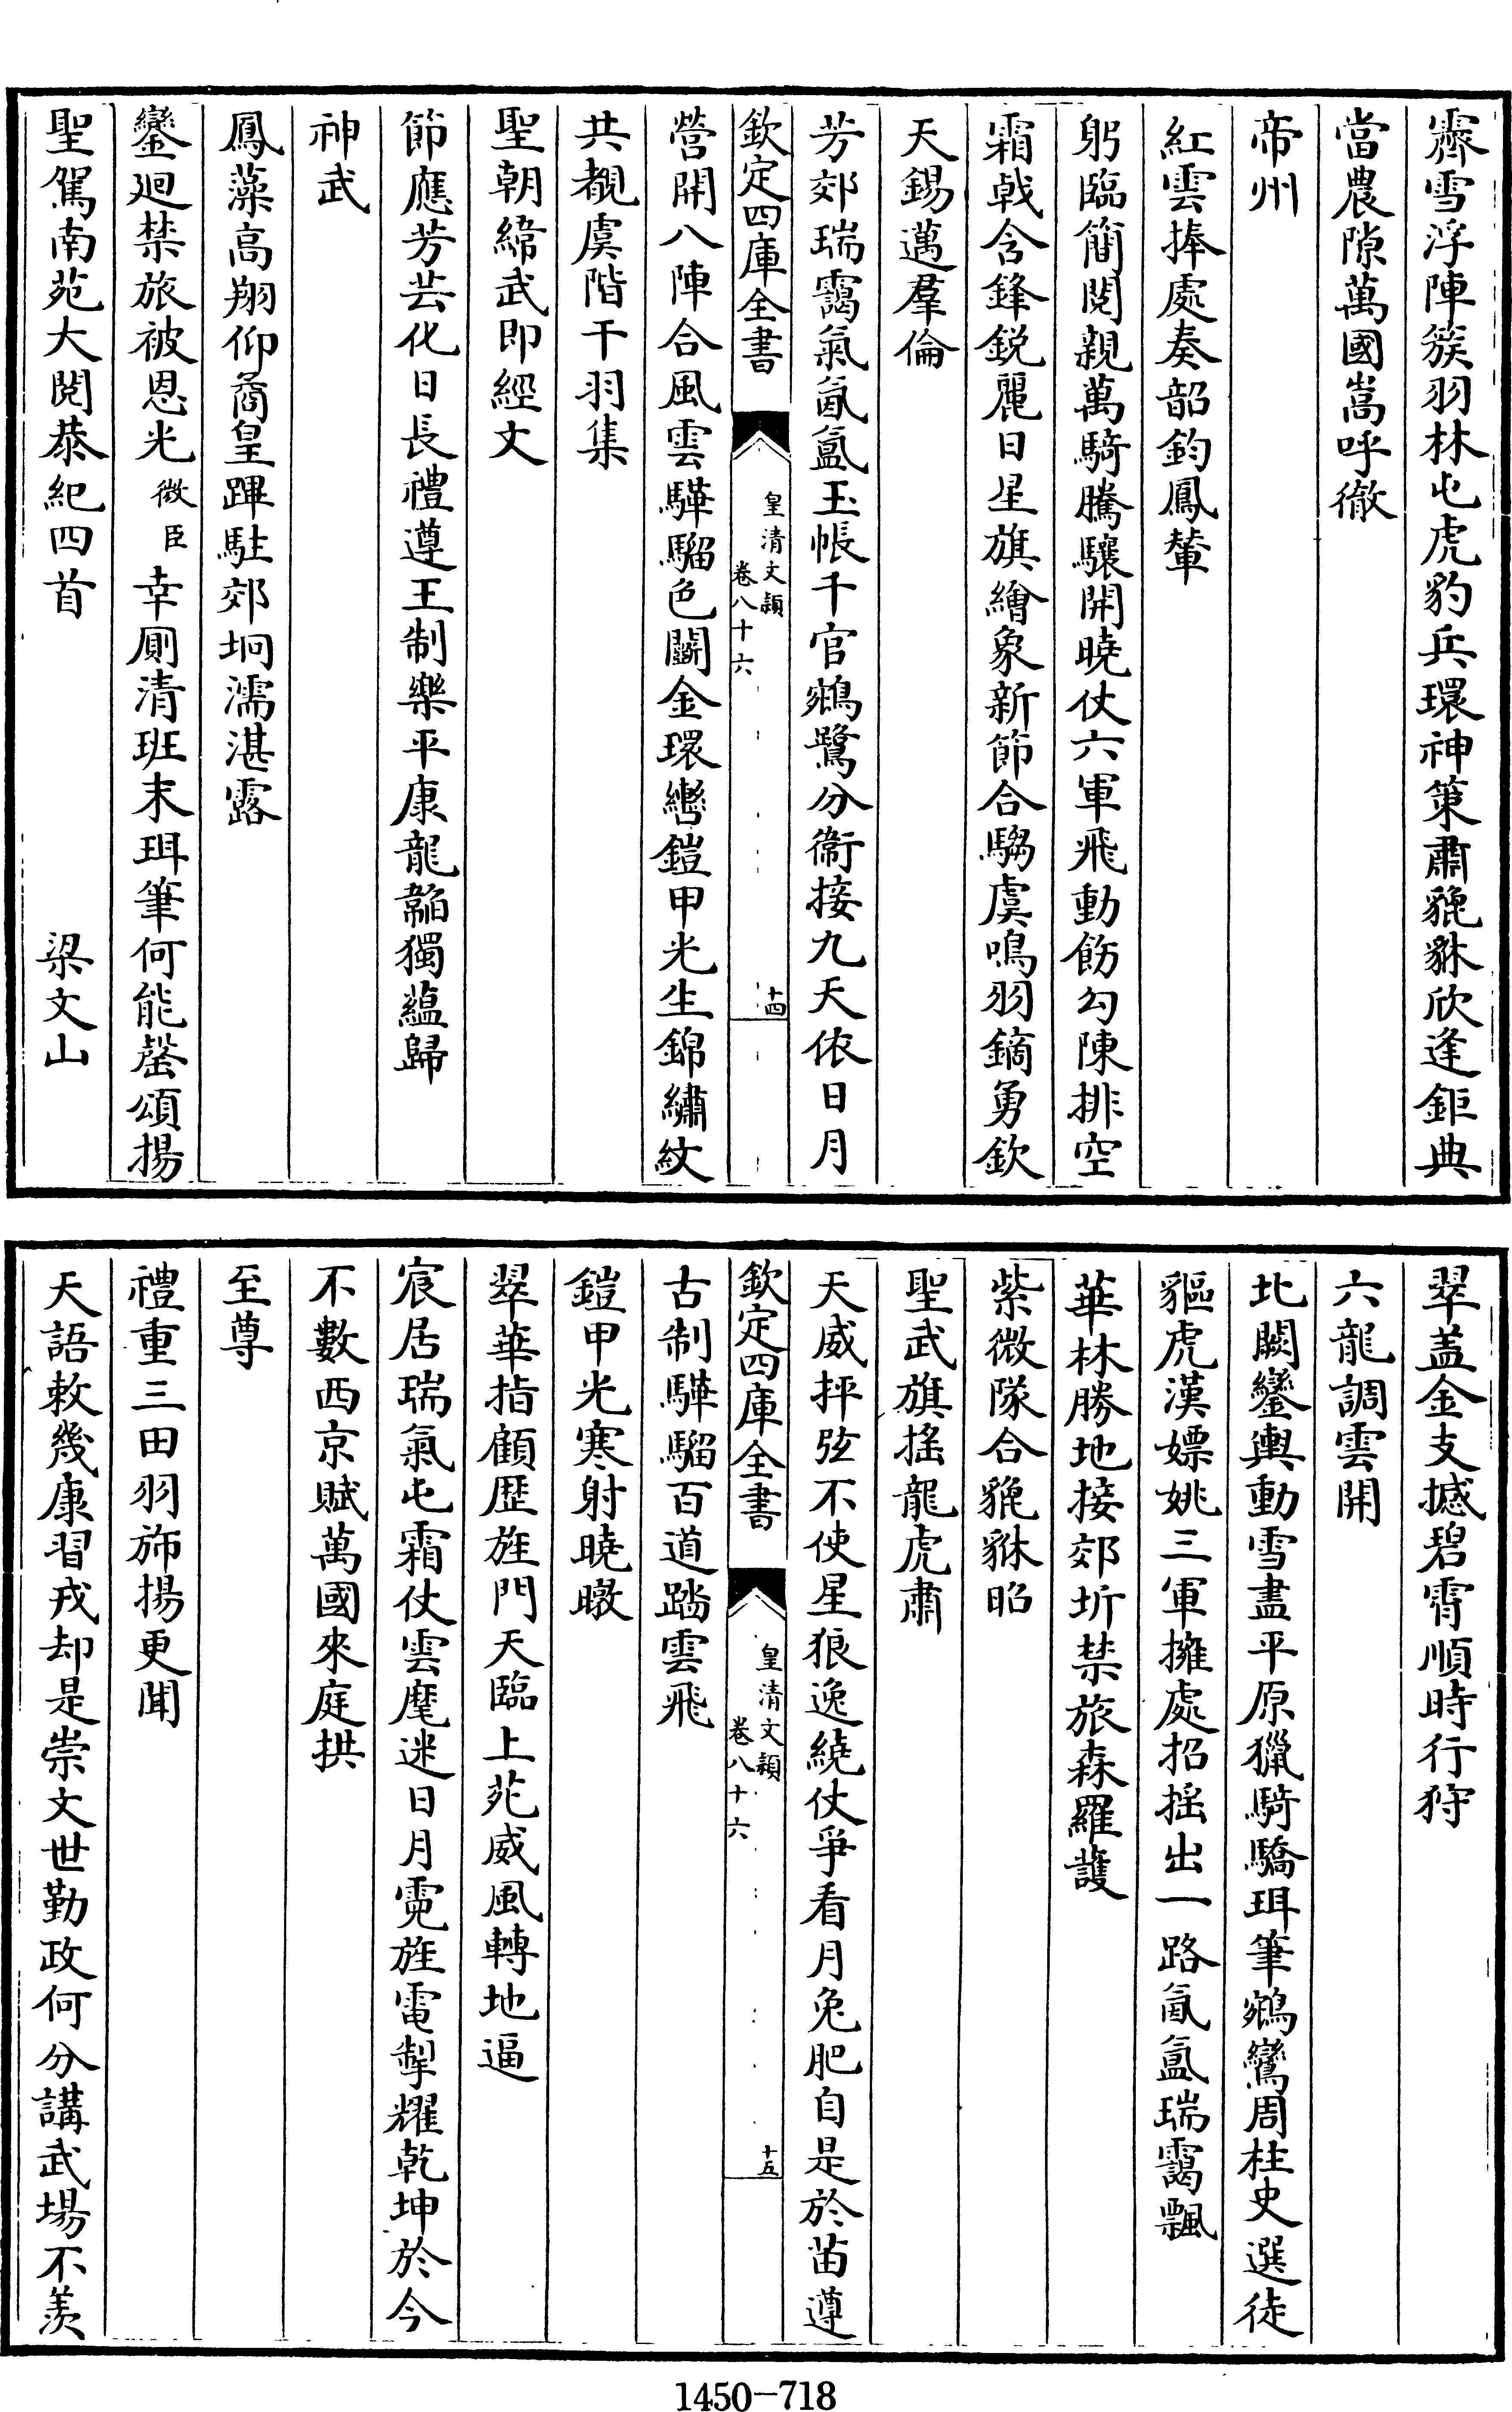 霽雪浮陣簇羽林屯虎豹兵環神策肅貔貅欣逢鉅典
當農隙萬國嵩呼徹
帝州
紅雲捧處奏韶鈞鳳輦
躬臨簡閱親萬騎騰驤開曉仗六軍飛動飭勾陳排空
霜戟含鋒銳麗日星旗繪象新節合騶虞鳴羽鏑勇欽
天錫邁羣倫
芳郊瑞靄氣氤氳玉帳千官鵷鷺分衞接九天依日月
欽定四庫全書
皇清文穎
卷八十六
十四
營開八陣合風雲驊騮色鬭金環轡鎧甲光生錦繡紋
共覩虞階干羽集
聖朝締武即經文
節應芳芸化日長禮遵王制樂平康龍韜獨蘊歸
神武
鳳藻高翔仰矞皇蹕駐郊坰濡湛露
鑾迴禁旅被恩光微臣幸厠清班末珥筆何能罄頌揚
聖駕南苑大閱恭紀四首
梁文山
翠盖金支撼碧霄順時行狩
六龍調雲開
北闕鑾輿動雪盡平原獵騎驕珥筆鵷鸞周柱史選徒
貙虎漢嫖姚三軍擁處招搖出一路氤氳瑞靄飄
華林勝地接郊圻禁旅森羅護
紫微隊合貔貅昭
聖武旗搖龍虎肅
天威抨弦不使星狼逸繞仗爭看月兔肥自是於苗遵
欽定四庫全書
皇清文穎
卷八十六
十五
古制驊騮百道踏雲飛
鎧甲光寒射曉暾
翠華指顧歷旌門天臨上苑威風轉地逼
宸居瑞氣屯霜仗雲麾迷日月霓旌電掣耀乾坤於今
不數西京賦萬國來庭拱
至尊
禮重三田羽斾揚更聞
天語敕幾康習戎却是崇文世勤政何分講武場不羨
1450-718